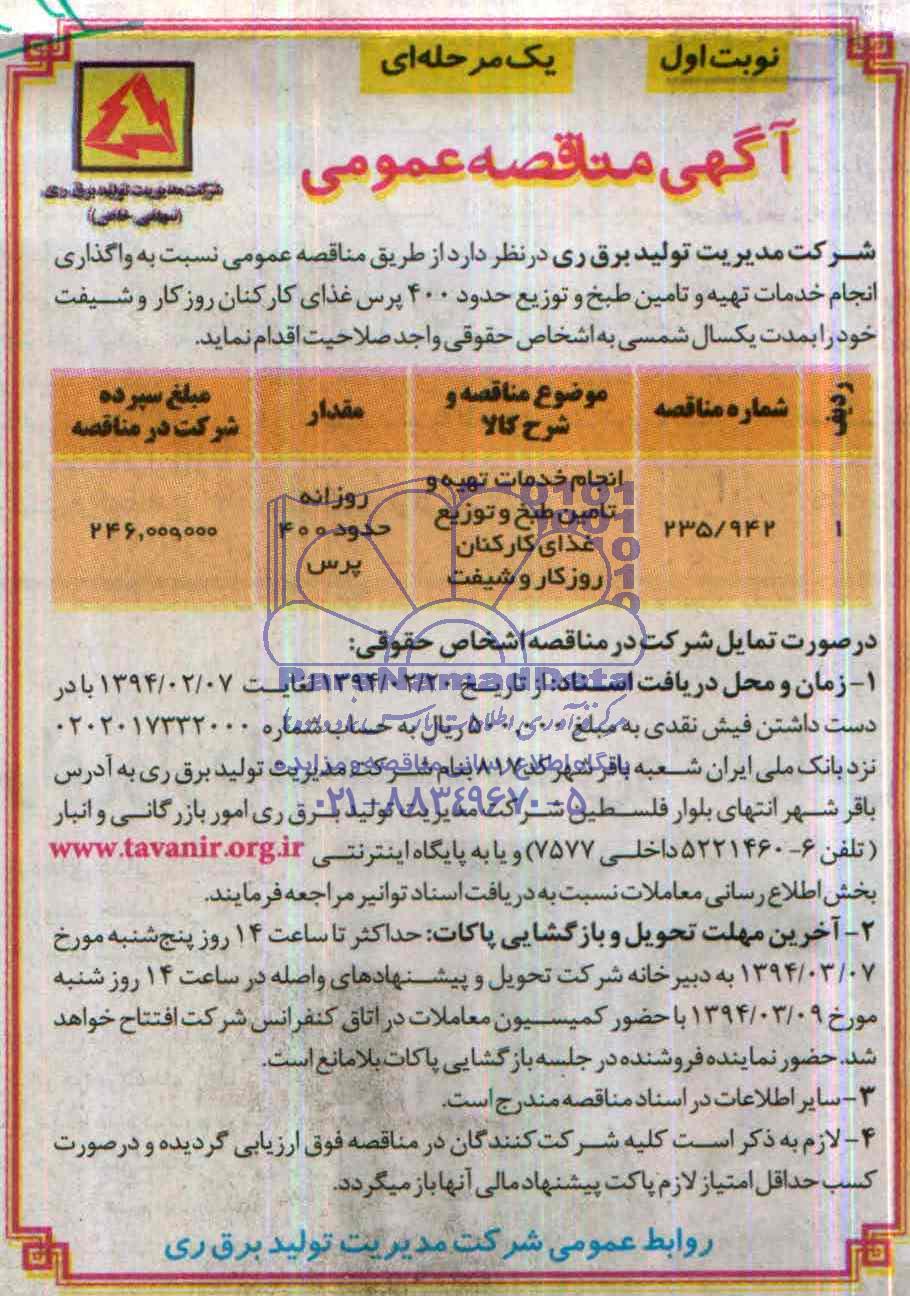 نوبت اول
یک مرحله‌ای
آگهی مناقصه عمومی
شرکت مدیریت تولید برق ری
(سهامی خاص)
شرکت مدیریت تولید برق ری در نظر دارد از طریق مناقصه عمومی نسبت به واگذاری
انجام خدمات تهیه و تامین طبخ و توزیع حدود ۴۰۰ پرس غذای کارکنان روز کار و شیفت
خود را بمدت یکسال شمسی به اشخاص حقوقی واجد صلاحیت اقدام نماید.
ردیف
شماره مناقصه
موضوع مناقصه و
شرح کالا
مقدار
مبلغ سپرده
شرکت در مناقصه
۱
۲۳۵/۹۴۲
انجام خدمات تهیه و
تامین طبخ و توزیع
غذای کارکنان
روز کار و شیفت
روزانه
حدود ۴۰۰
پرس
۲۴۶,۰۰۰,۰۰۰
در صورت تمایل شرکت در مناقصه اشخاص حقوقی:
۱- زمان و محل دریافت اسناد: از تاریخ ۱۳۹۴/۰۲/۲۰ لغایت ۱۳۹۴/۰۲/۰۷ با در
دست داشتن فیش نقدی به مبلغ ۵۰۰,۰۰۰ ریال به حساب شماره ۰۲۰۲۰۱۷۳۳۲۰۰۰
نزد بانک ملی ایران شعبه باقر شهر کد ۸۱۷ بنام شرکت مدیریت تولید برق ری به آدرس
باقر شهر انتهای بلوار فلسطین شرکت مدیریت تولید برق ری امور بازرگانی و انبار
(تلفن ۶-۵۲۲۱۴۶۰ داخلی ۷۵۷۷) و یا به پایگاه اینترنتی www.tavanir.org.ir
بخش اطلاع رسانی معاملات نسبت به دریافت اسناد توانیر مراجعه فرمایند.
۲- آخرین مهلت تحویل و بازگشایی پاکات: حداکثر تا ساعت ۱۴ روز پنج‌شنبه مورخ
۱۳۹۴/۰۳/۰۷ به دبیرخانه شرکت تحویل و پیشنهادهای واصله در ساعت ۱۴ روز شنبه
مورخ ۱۳۹۴/۰۳/۰۹ با حضور کمیسیون معاملات در اتاق کنفرانس شرکت افتتاح خواهد
شد. حضور نماینده فروشنده در جلسه بازگشایی پاکات بلامانع است.
۳- سایر اطلاعات در اسناد مناقصه مندرج است.
۴- لازم به ذکر است کلیه شرکت‌کنندگان در مناقصه فوق ارزیابی گردیده و در صورت
کسب حداقل امتیاز لازم پاکت پیشنهاد مالی آنها باز میگردد.
روابط عمومی شرکت مدیریت تولید برق ری
ParsNamadData
پایگاه اطلاع رسانی مناقصه و مزایده
۰۲۱-۸۸۳۴۹۶۷۰-۵